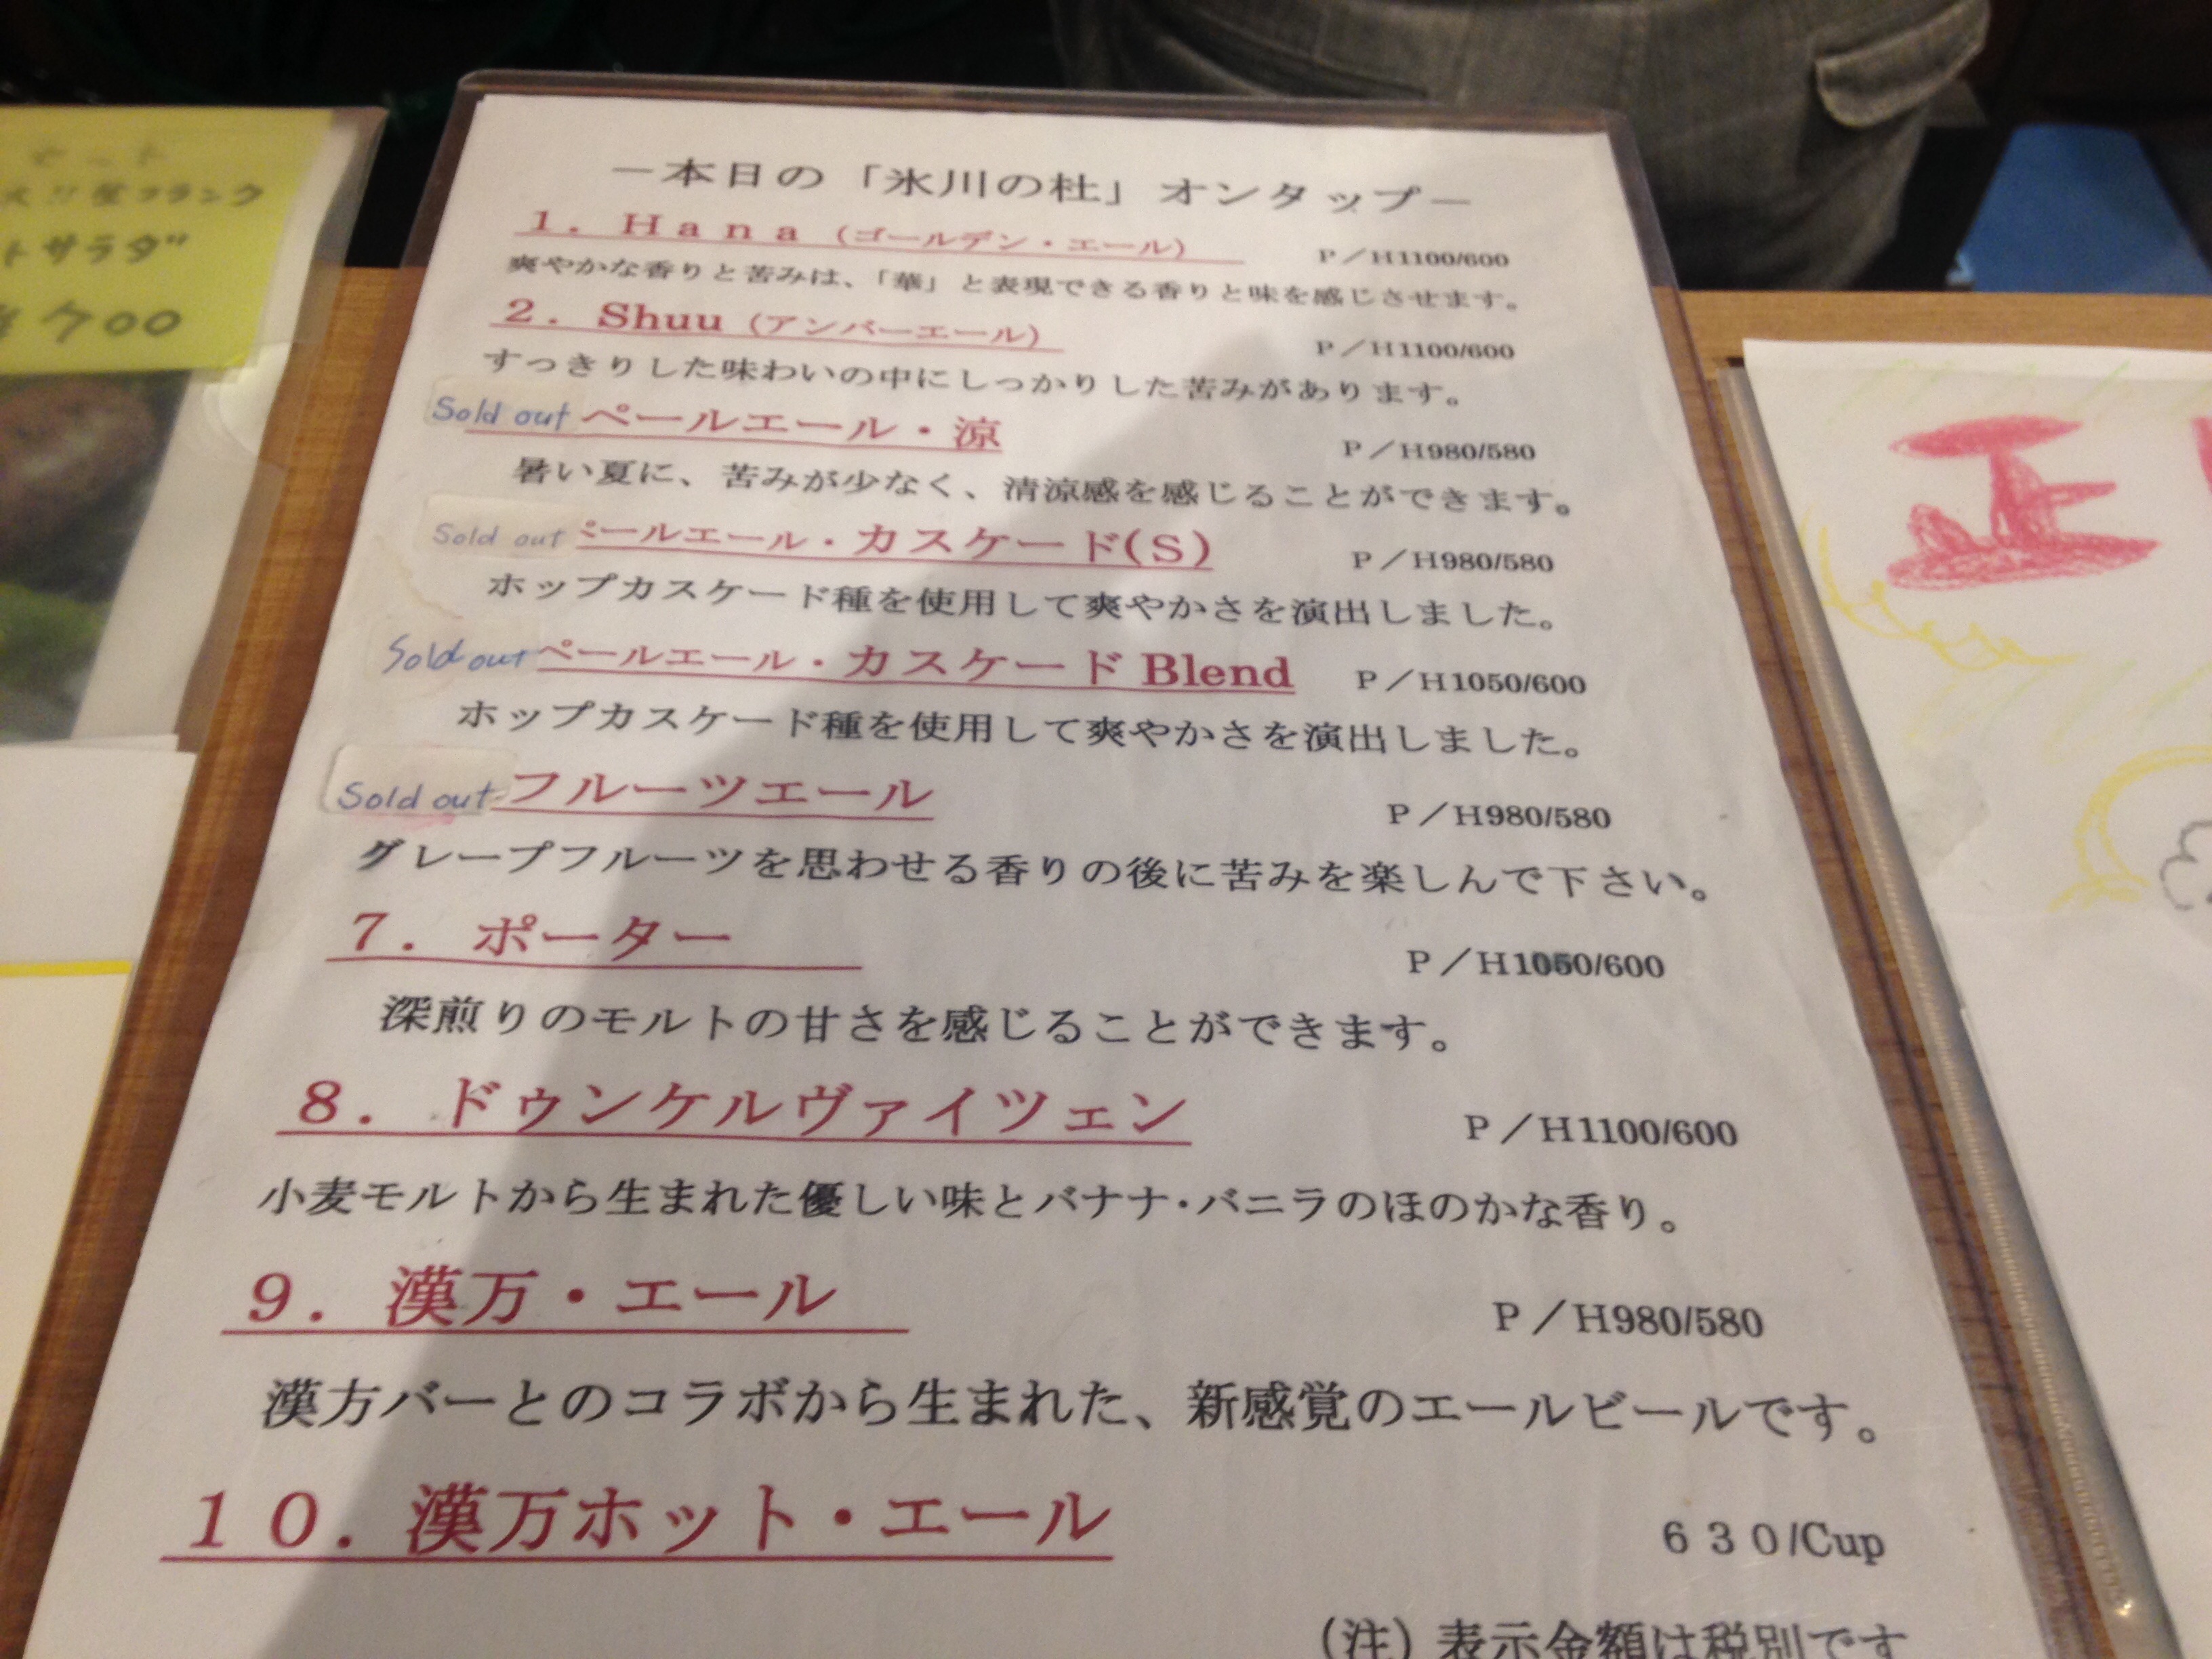 －本日の「氷川の杜」オンタップ－
1．Hana（ゴールデン・エール） P／H1100/600
爽やかな香りと苦みは、「華」と表現できる香りと味を感じさせます。
2．Shuu（アンバーエール） P／H1100/600
すっきりした味わいの中にしっかりした苦みがあります。
Sold out ペールエール・涼 P／H980/580
暑い夏に、苦みが少なく、清涼感を感じることができます。
Sold out ペールエール・カスケード(S) P／H980/580
ホップカスケード種を使用して爽やかさを演出しました。
Sold out ペールエール・カスケード Blend P／H1050/600
ホップカスケード種を使用して爽やかさを演出しました。
Sold out フルーツエール P／H980/580
グレープフルーツを思わせる香りの後に苦みを楽しんで下さい。
7．ポーター P／H1050/600
深煎りのモルトの甘さを感じることができます。
8．ドゥンケルヴァイツェン P／H1100/600
小麦モルトから生まれた優しい味とバナナ・バニラのほのかな香り。
9．漢万・エール P／H980/580
漢方バーとのコラボから生まれた、新感覚のエールビールです。
10．漢万ホット・エール 630/Cup
（注）表示金額は税別です
セット
フランク
トサラダ
700
正